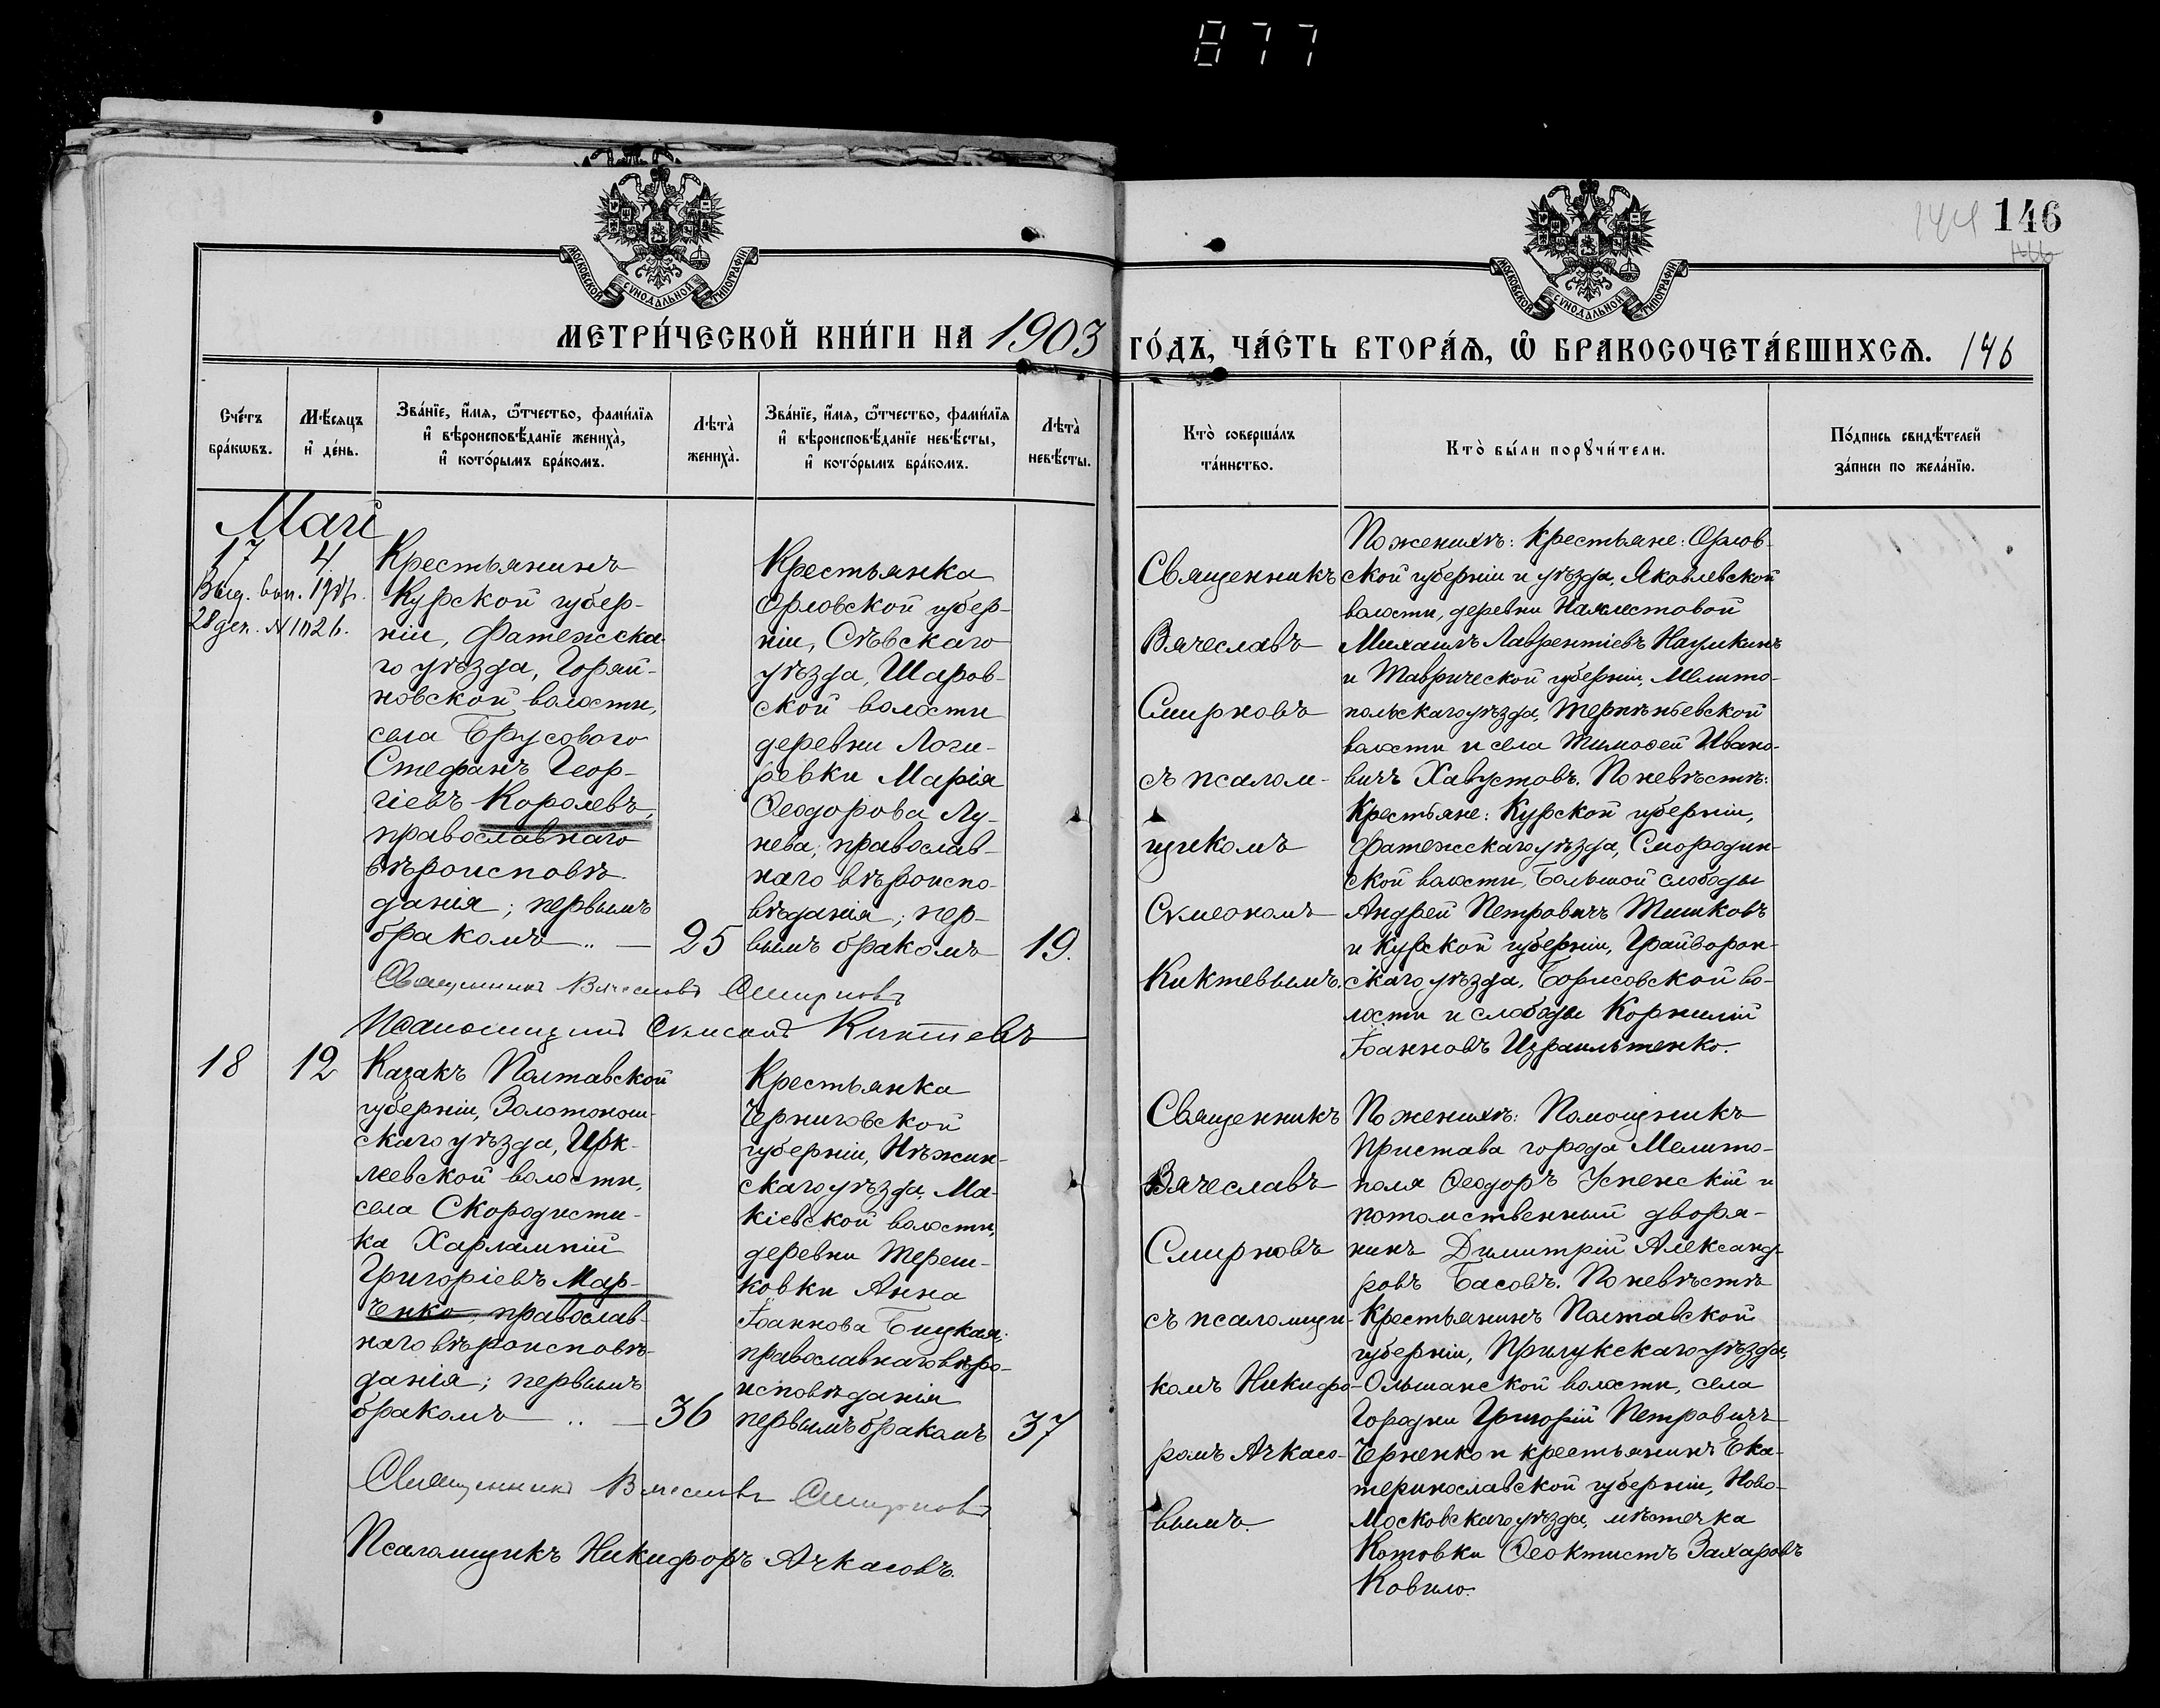 877
146
МОСКОВСКОЙ СѴНОДАЛЬНОЙ ТИПОГРАФІИ
МОСКОВСКОЙ СѴНОДАЛЬНОЙ ТИПОГРАФІИ
МЕТРИ́ЧЕСКОЙ КНИ́ГИ НА 1903 ГО́ДЪ, ЧА́СТЬ ВТОРА́Ѧ, Ѽ БРАКОСОЧЕТА́ВШИХСѦ. 146
Сче́тъ бра́кωвъ.
Мѣ́сѧцъ и҆ де́нь.
Зва́нїе, и҆́мѧ, ѻ҆́тчество, фами́лїѧ и҆ вѣроисповѣ́данїе жениха̀, и҆ кото́рымъ бра́комъ.
Лѣта̀ жениха̀.
Зва́нїе, и҆́мѧ, ѻ҆́тчество, фами́лїѧ и҆ вѣроисповѣ́данїе невѣ́сты, и҆ кото́рымъ бра́комъ.
Лѣта̀ невѣ́сты.
Кто̀ соверша́лъ та́инство.
Кто̀ бы́ли порꙋчи́тели.
По́дпись свидѣ́телей за́писи по жела́нїю.
Май
17
4
28 дек. № 1026.
Крестьянинъ
Курской губер-
ніи, Фатежска-
го уѣзда, Горяй-
новской волости,
села Брусового
Стефанъ Геор-
гіевъ Королевъ,
православнаго
вѣроисповѣ-
данія; первымъ
бракомъ
25
Крестьянка
Орловской губер-
ніи, Сѣвскаго
уѣзда, Шаров-
ской волости
деревни Логи-
ревки Марія
Ѳеодорова Лу-
нева, православ-
наго вѣроиспо-
вѣданія; пер-
вымъ бракомъ
19.
Священникъ Вячеславъ Смирновъ
Псаломщикъ Сѵмеонъ Киктевъ
Священникъ
Вячеславъ
Смирновъ
съ псалом-
щикомъ
Сѵмеономъ
Киктевымъ.
По женихѣ: крестьяне: Орлов-
ской губерніи и уѣзда, Яковлевской
волости, деревни
Михаилъ Лаврентіевъ Наумкинъ
и Таврической губерніи, Мелито-
польскаго уѣзда, Терпѣньевской
волости и села Тимоѳей Ивано-
вичъ Хавустовъ. По невѣстѣ:
Крестьяне: Курской губерніи,
Фатежскаго уѣзда, Смородин-
ской волости, Большой слободы
Андрей Петровичъ Тишковъ
и Курской губерніи, Грайворон-
скаго уѣзда, Борисовской во-
лости и слободы Корнилій
Іоанновъ Израильтенко.
18
12
Казакъ Полтавской
губерніи, Золотонош-
скаго уѣзда, Ирк-
леевской волости,
села Скородисти-
ка Харлампій
Григоріевъ Мар-
ченко, православ-
наго вѣроисповѣ-
данія; первымъ
бракомъ
36
Крестьянка
Черниговской
губерніи, Нѣжин-
скаго уѣзда, Ма-
кіевской волости,
деревни Тереш-
ковки Анна
Іоаннова Буцкая;
православнаго вѣро-
исповѣданія
первымъ бракомъ
37
Священникъ Вячеславъ Смирновъ
Псаломщикъ Никифоръ Ачкасовъ.
Священникъ
Вячеславъ
Смирновъ
съ псаломщи-
комъ Никифо-
ромъ Ачкасо-
вымъ.
По женихѣ: Помощникъ
Пристава города Мелито-
поля Ѳеодоръ Успенскій и
потомственный дворя-
нинъ Димитрій Александ-
ровъ Басовъ. По невѣстѣ
Крестьянинъ Полтавской
губерніи, Прилукскаго уѣзда,
Ольшанской волости, села
Городни Григорій Петровичъ
Черненко и крестьянинъ Ека-
теринославской губерніи, Ново-
московскаго уѣзда, мѣстечка
Котовки Ѳеоктистъ Захаровъ
Ковило.